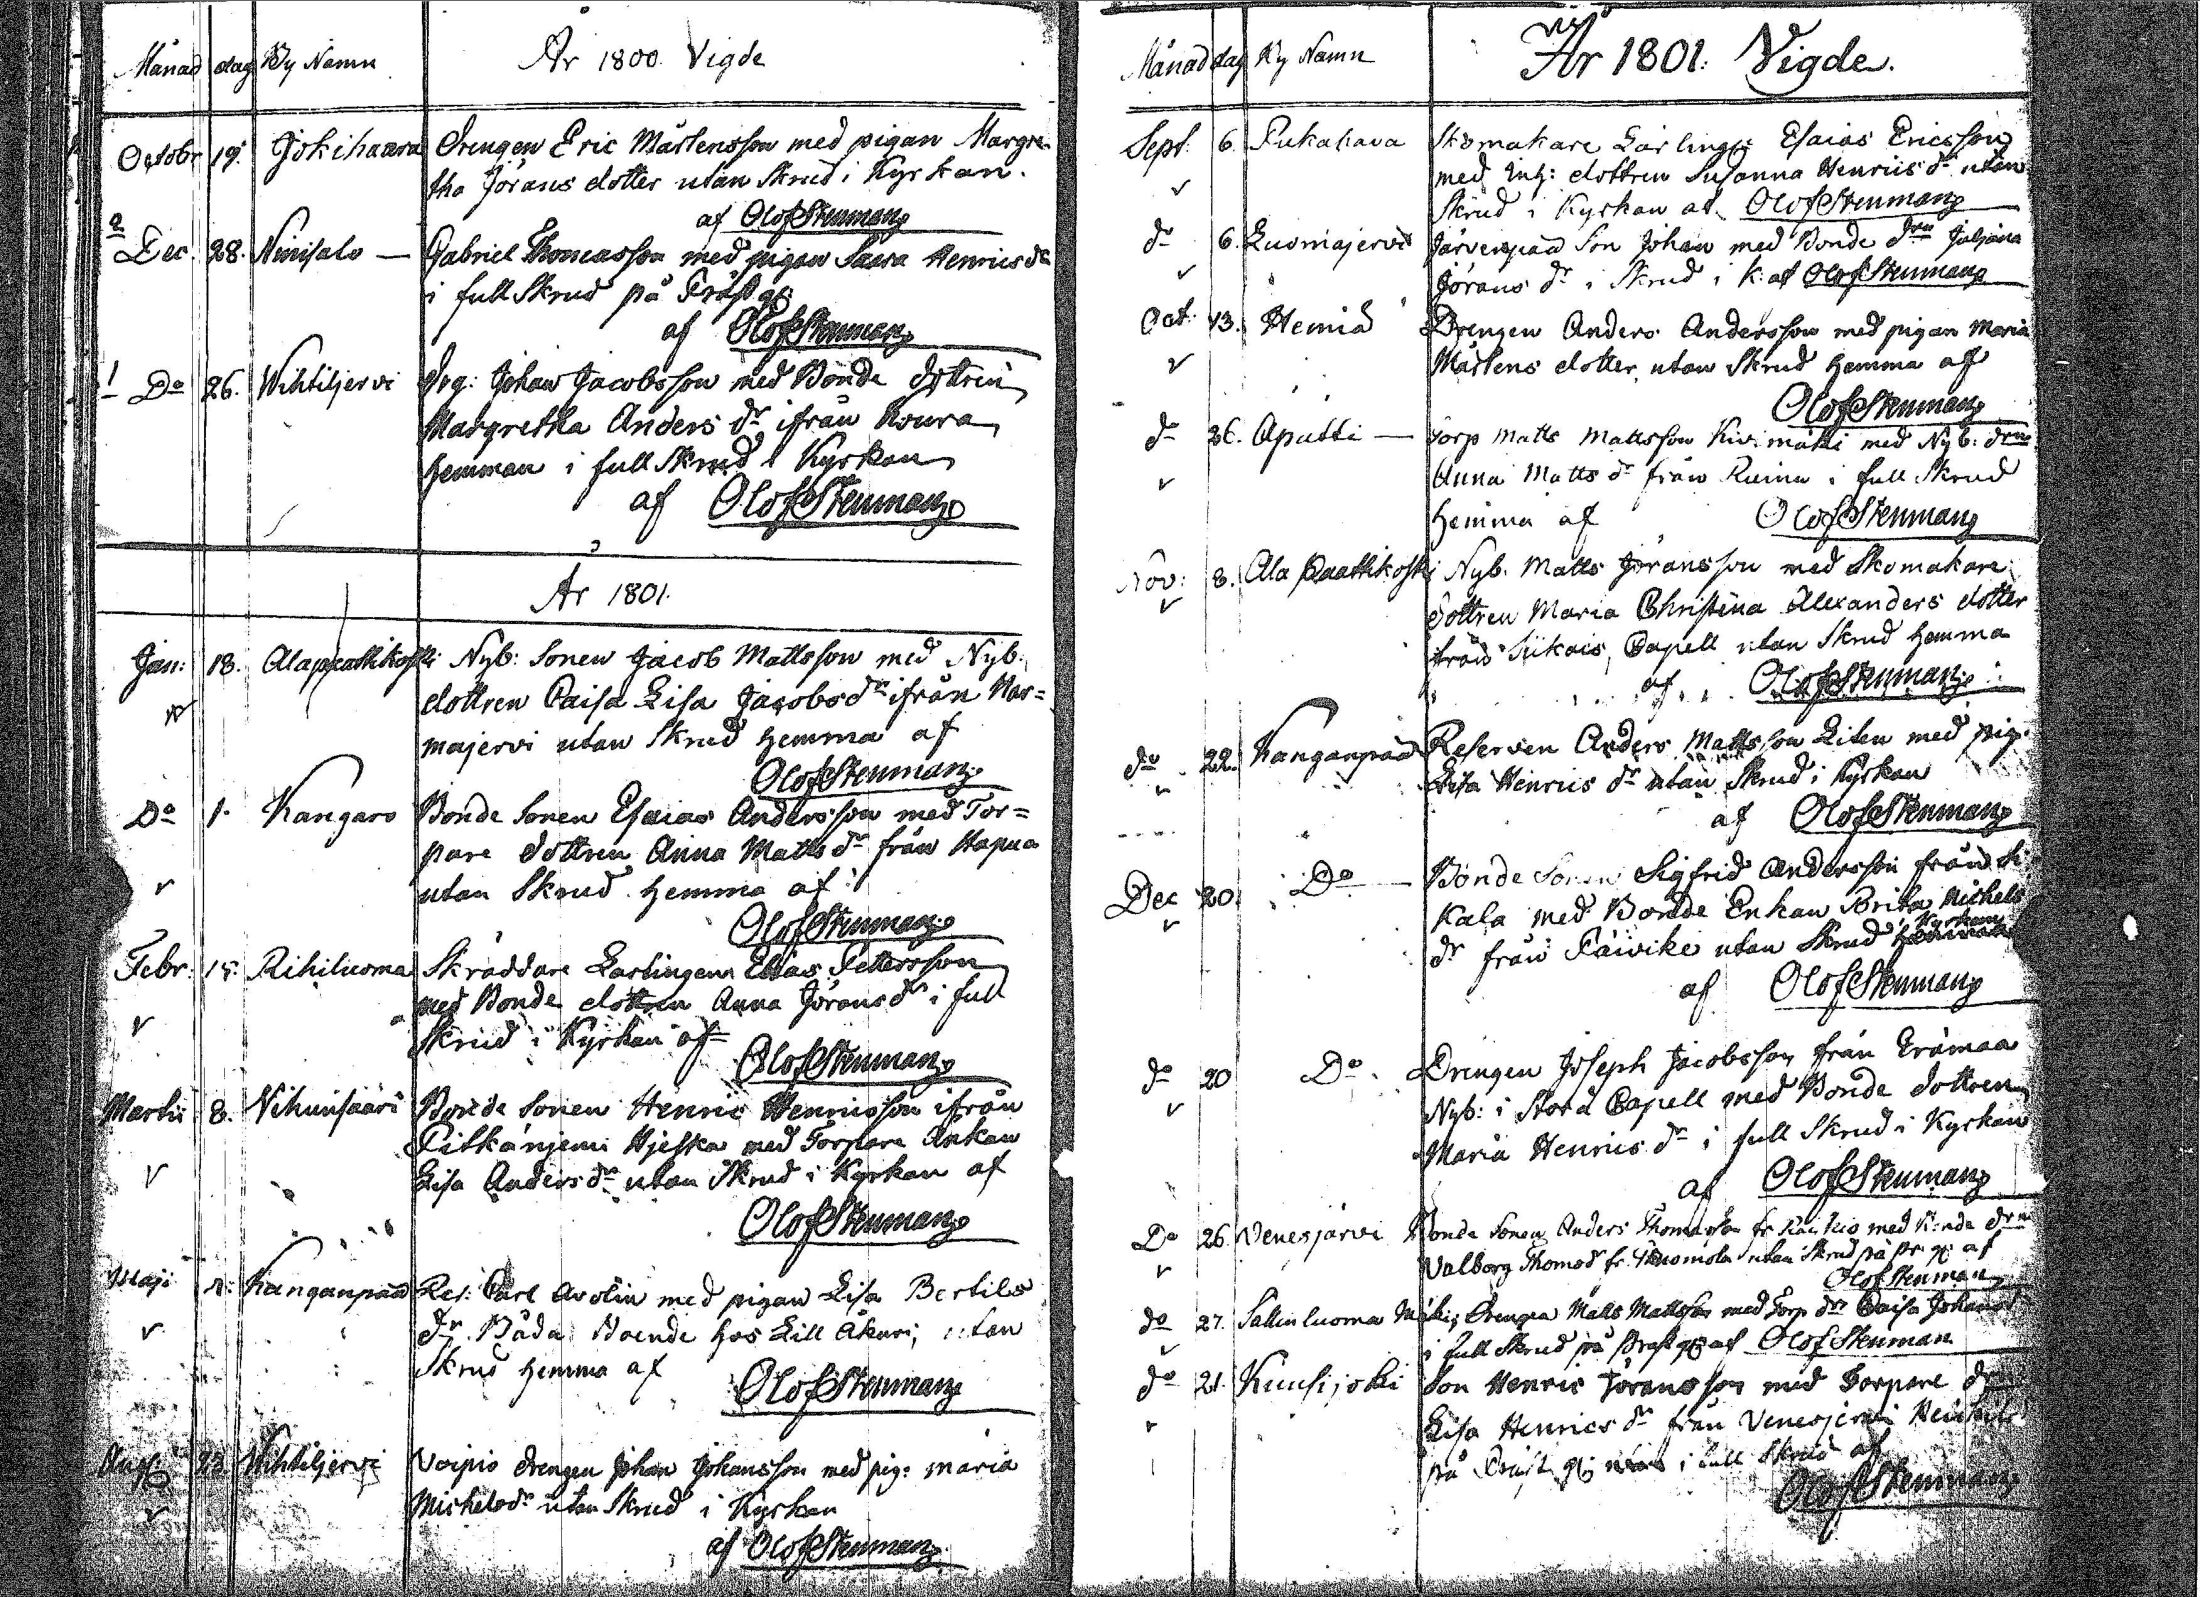 Månad dag By Namn År 1800. Vigde
Octobr 19. Jokihaara Drengen Eric Mårtensson med pigan Margre-
tha Jörans dotter utan Skrud i Kyrkan.
af Olof Stenman
2 Dec. 28. Niinisalo — Gabriel Thomasson med pigan Saara Henrics dr
i full Skrud på Präst g:
af Olof Stenman
1 Do 26. Wihtiljervi Drg: Johan Jacobsson med Bonde dottren
Margretha Anders dr ifrån Koura
hemman i full Skrud i Kyrkan
af Olof Stenman
År 1801.
Jan: 18. Alapaattikoski Nyb: Sonen Jacob Mattsson med Nyb:
dottren Caisa Lisa Jacobs dr ifrån Nar=
majervi utan Skrud hemma af
Olof Stenman
Do 1. Kangaro Bonde Sonen Esaias Andersson med Tor=
pare dottren Anna Matts dr från Hapua
utan Skrud hemma af
Olof Stenman
Febr: 15. Rihiluoma Skräddare Lärlingen Elias Pettersson
med Bonde dottren Anna Jörans dr i full
Skrud i Kyrkan af
Olof Stenman
Martii 8. Vihunsaari Bonde Sonen Henric Henricsson ifrån
Pitkänjemi Hjeska med Torpare Änkan
Lisa Anders dr utan Skrud i Kyrkan af
Olof Stenman
Maji Kanganpää Res: Carl Avolin med pigan Lisa Bertils
dr Båda Boende hos Lill Äkäri, utan
Skrud hemma af
Olof Stenman
Aug: 23. Wihtiljervi Voipio drengen Johan Johansson med pig: Maria
Michels dr utan Skrud i Kyrkan
af Olof Stenman
Månad dag By Namn År 1801. Vigde.
Sept. 6. Pukahara Skomakare Lärling Esaias Ericsson
med Inh: dottren Susanna Henrics dr utan
Skrud i Kyrkan af Olof Stenman
do 6. Luomajervi Järvenpää Son Johan med Bonde dren Juljana
Jörans dr i Skrud i K: af Olof Stenman
Oct. 13. Hemiä Drengen Anders Andersson med pigan Maria
Mårtens dotter utan Skrud hemma af
Olof Stenman
do 26. Aputti — Torp Matts Mattsson Kivimäki med Nyb: dren
Anna Matts dr från Ruinu i full Skrud
hemma af Olof Stenman
Nov: 8. Ala Paattikoski Nyb. Matts Jöransson med Skomakare
dottren Maria Christina Alexanders dotter
från Siikais Capell utan Skrud hemma
af Olof Stenman
do 22. Kanganpää Reserven Anders Mattsson Liten med pig.
Lisa Henrics dr utan Skrud i Kyrkan
af Olof Stenman
Dec 20. Do — Bonde Sonen Sigfrid Andersson från
Kala med Bonde Enkan Brita Michels
dr från Päivike utan Skrud i Kyrkan
af Olof Stenman
do 20 Do. Drengen Joseph Jacobsson från Erämaa
Nyb: i Storå Capell med Bonde dottren
Maria Henrics dr i full Skrud i Kyrkan
af Olof Stenman
Do 26. Venesjärvi Bonde Sonen Anders Thomasson fr med Bonde dren
Valborg Thomas dr fr. utan Skrud på Pr. g: af
Olof Stenman
do 27. Sallinluoma Mäki, Drengen Matts Mattsson med Torp dr Caisa Johans dr
i full Skrud på Präst g: af Olof Stenman
do 21. Kuusijoki Son Henric Jöransson med Torpare dr
Lisa Henrics dr från Venesjervi
på Präst g: i full Skrud af
Olof Stenman